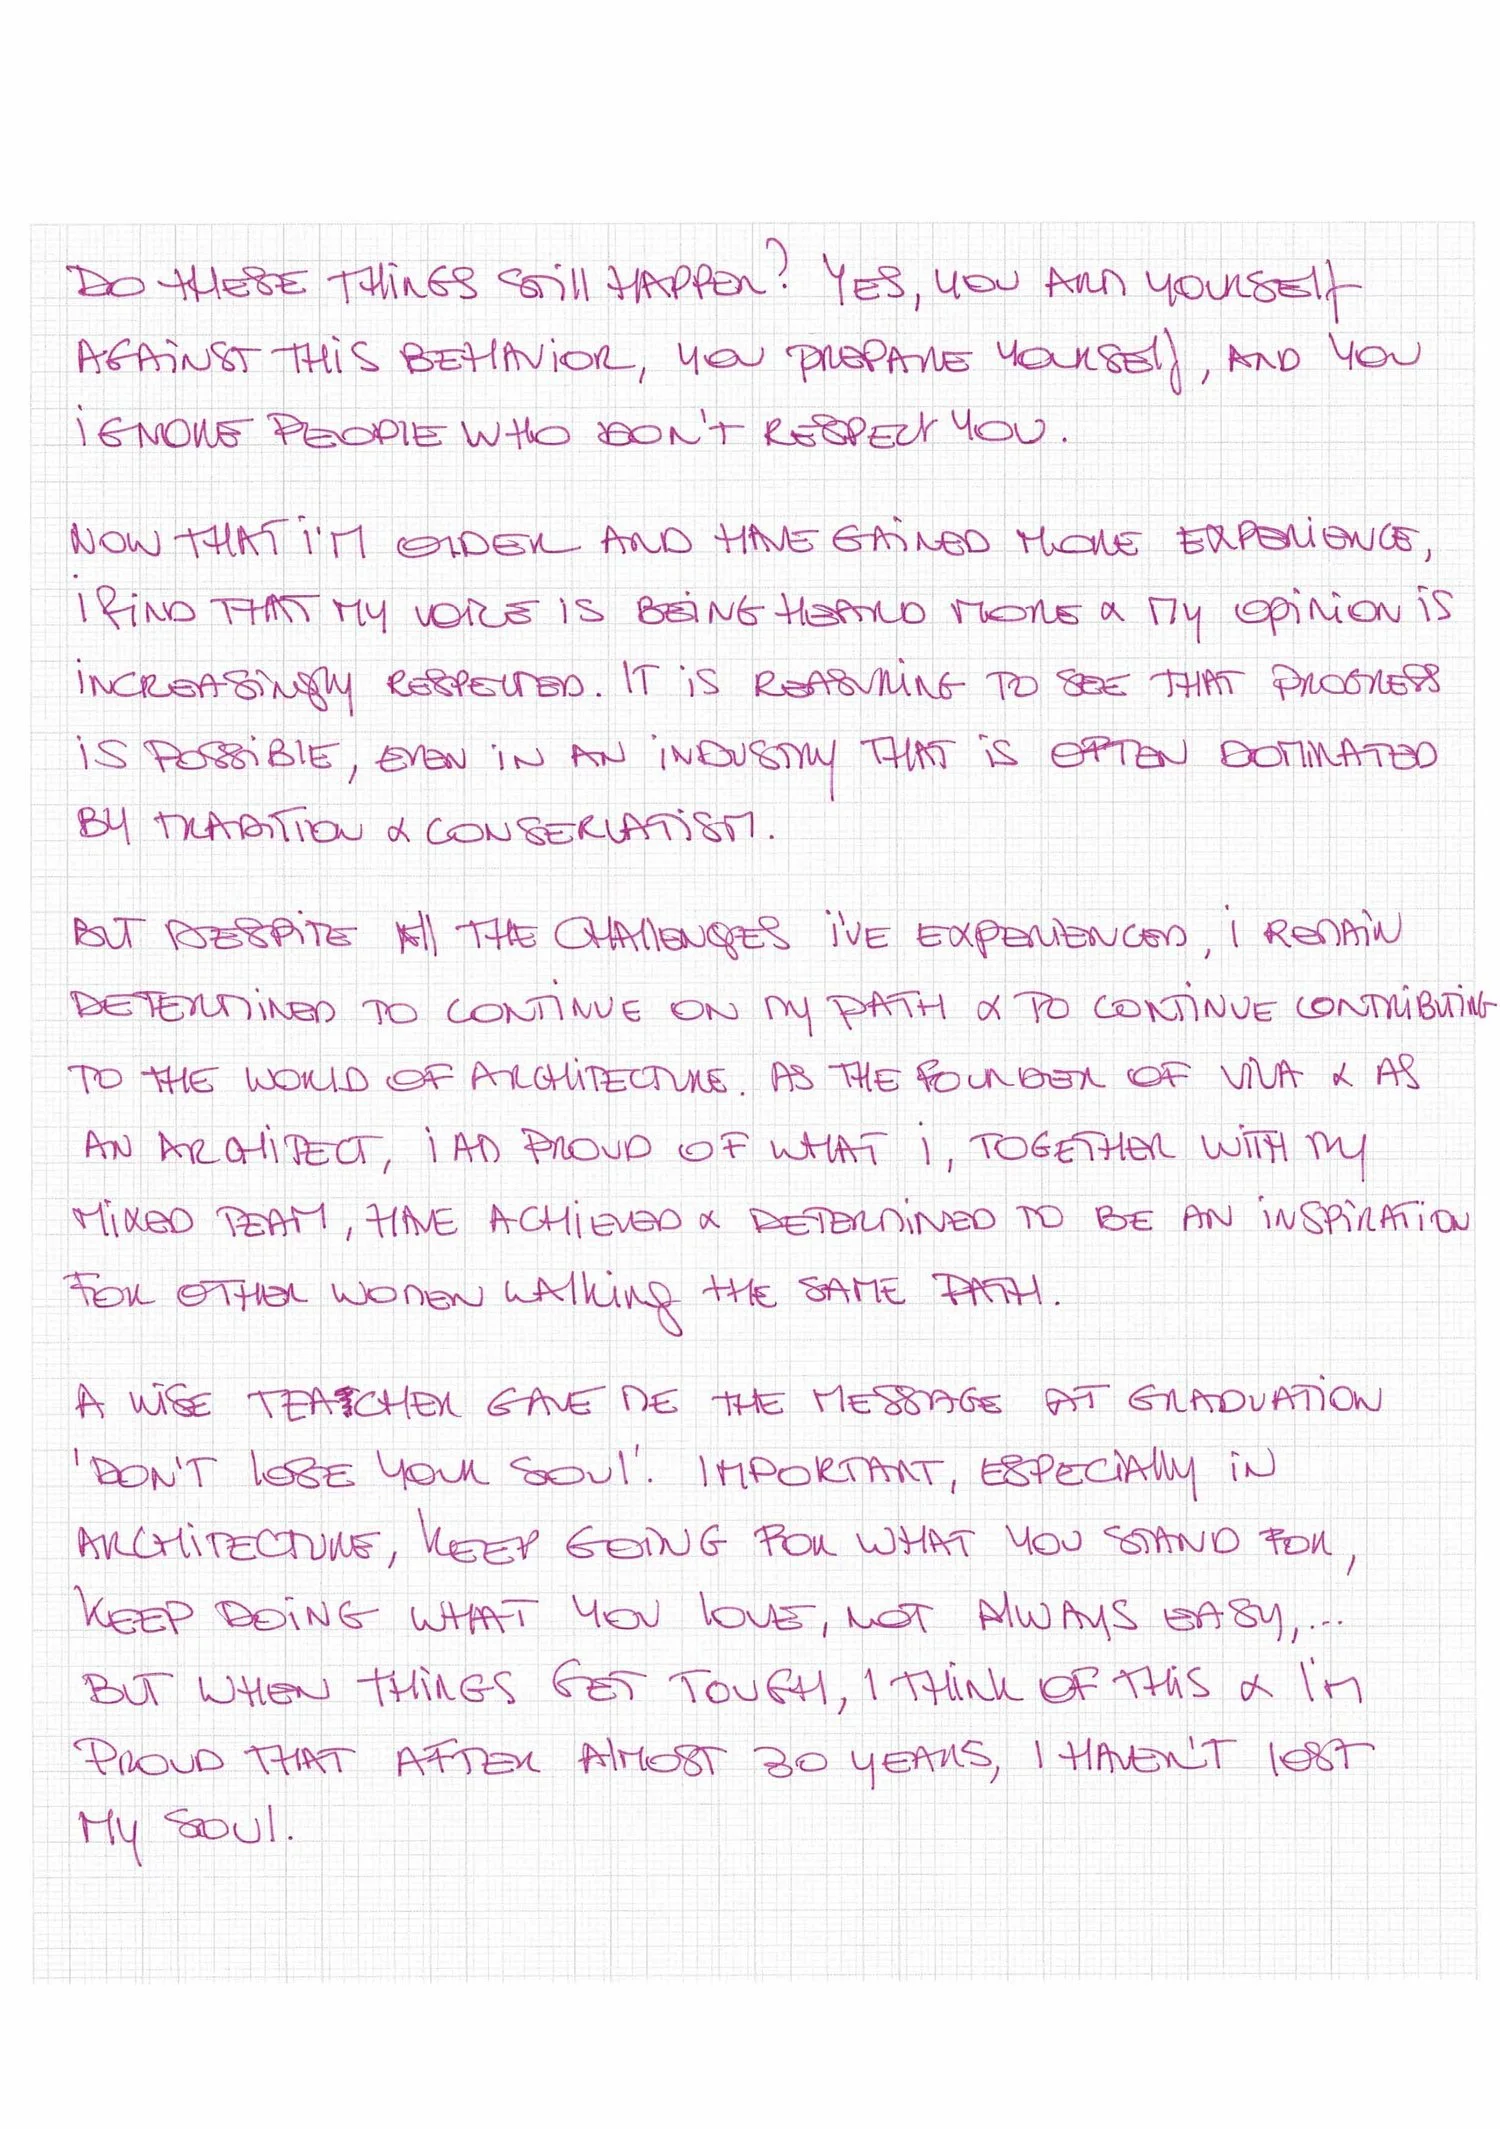 DO THESE THINGS STILL HAPPEN? YES, YOU ARM YOURSELF
AGAINST THIS BEHAVIOR, YOU PREPARE YOURSELF, AND YOU
IGNORE PEOPLE WHO DON'T RESPECT YOU.
NOW THAT I'M OLDER AND HAVE GAINED MORE EXPERIENCE,
I FIND THAT MY VOICE IS BEING HEARD MORE & MY OPINION IS
INCREASINGLY RESPECTED. IT IS REASURING TO SEE THAT PROGRESS
IS POSSIBLE, EVEN IN AN INDUSTRY THAT IS OFTEN DOMINATED
BY TRADITION & CONSERVATISM.
BUT DESPITE All THE CHAllENGES I'VE EXPERIENCED, I REMAIN
DETERMINED TO CONTINUE ON MY PATH & TO CONTINUE CONTRIBUTING
TO THE WORLD OF ARCHITECTURE. AS THE FOUNDER OF VIVA & AS
AN ARCHITECT, I AM PROUD OF WHAT I, TOGETHER WITH MY
MIXED TEAM, HAVE ACHIEVED & DETERMINED TO BE AN INSPIRATION
FOR OTHER WOMEN WALKING THE SAME PATH.
A WISE TEACHER GAVE ME THE MESSAGE AT GRADUATION
'DON'T LOSE YOUR SOUL'. IMPORTANT, ESPECIALLY IN
ARCHITECTURE, KEEP GOING FOR WHAT YOU STAND FOR,
KEEP DOING WHAT YOU LOVE, NOT ALWAYS EASY,...
BUT WHEN THINGS GET TOUGH, I THINK OF THIS & I'M
PROUD THAT AFTER ALMOST 30 YEARS, I HAVEN'T LOST
MY SOUL.